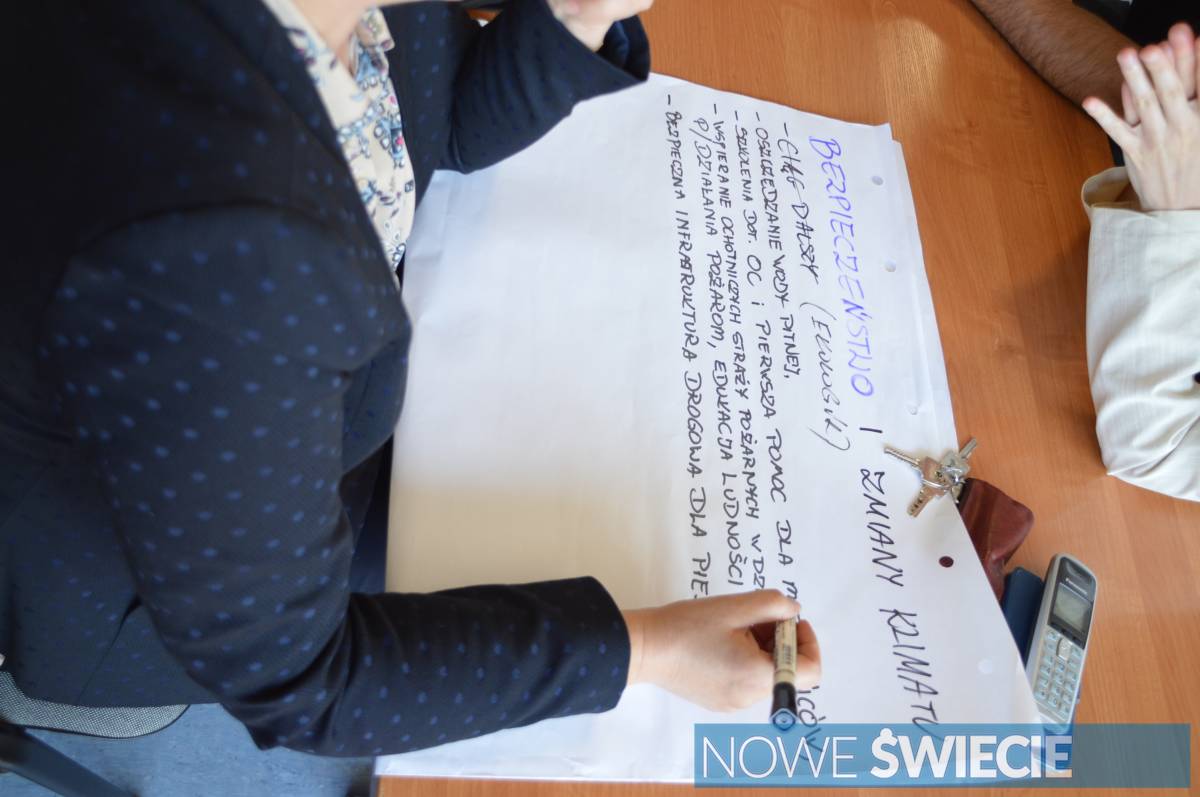 BEZPIECZEŃSTWO I ZMIANY KLIMATU
- CIĄG DALSZY (EWLOGIK)
- OSZCZĘDZANIE WODY PITNEJ.
- SZKOLENIA DOT. OC i PIERWSZA POMOC DLA
- WSPIERANIE OCHOTNICZYCH STRAŻY POŻARNYCH W
P/DZIAŁANIA POŻAROM, EDUKACJA LUDNOŚCI
- BEZPIECZNA INFRATRUKTURA DROGOWA DLA
Panasonic
NOWE ŚWIECIE